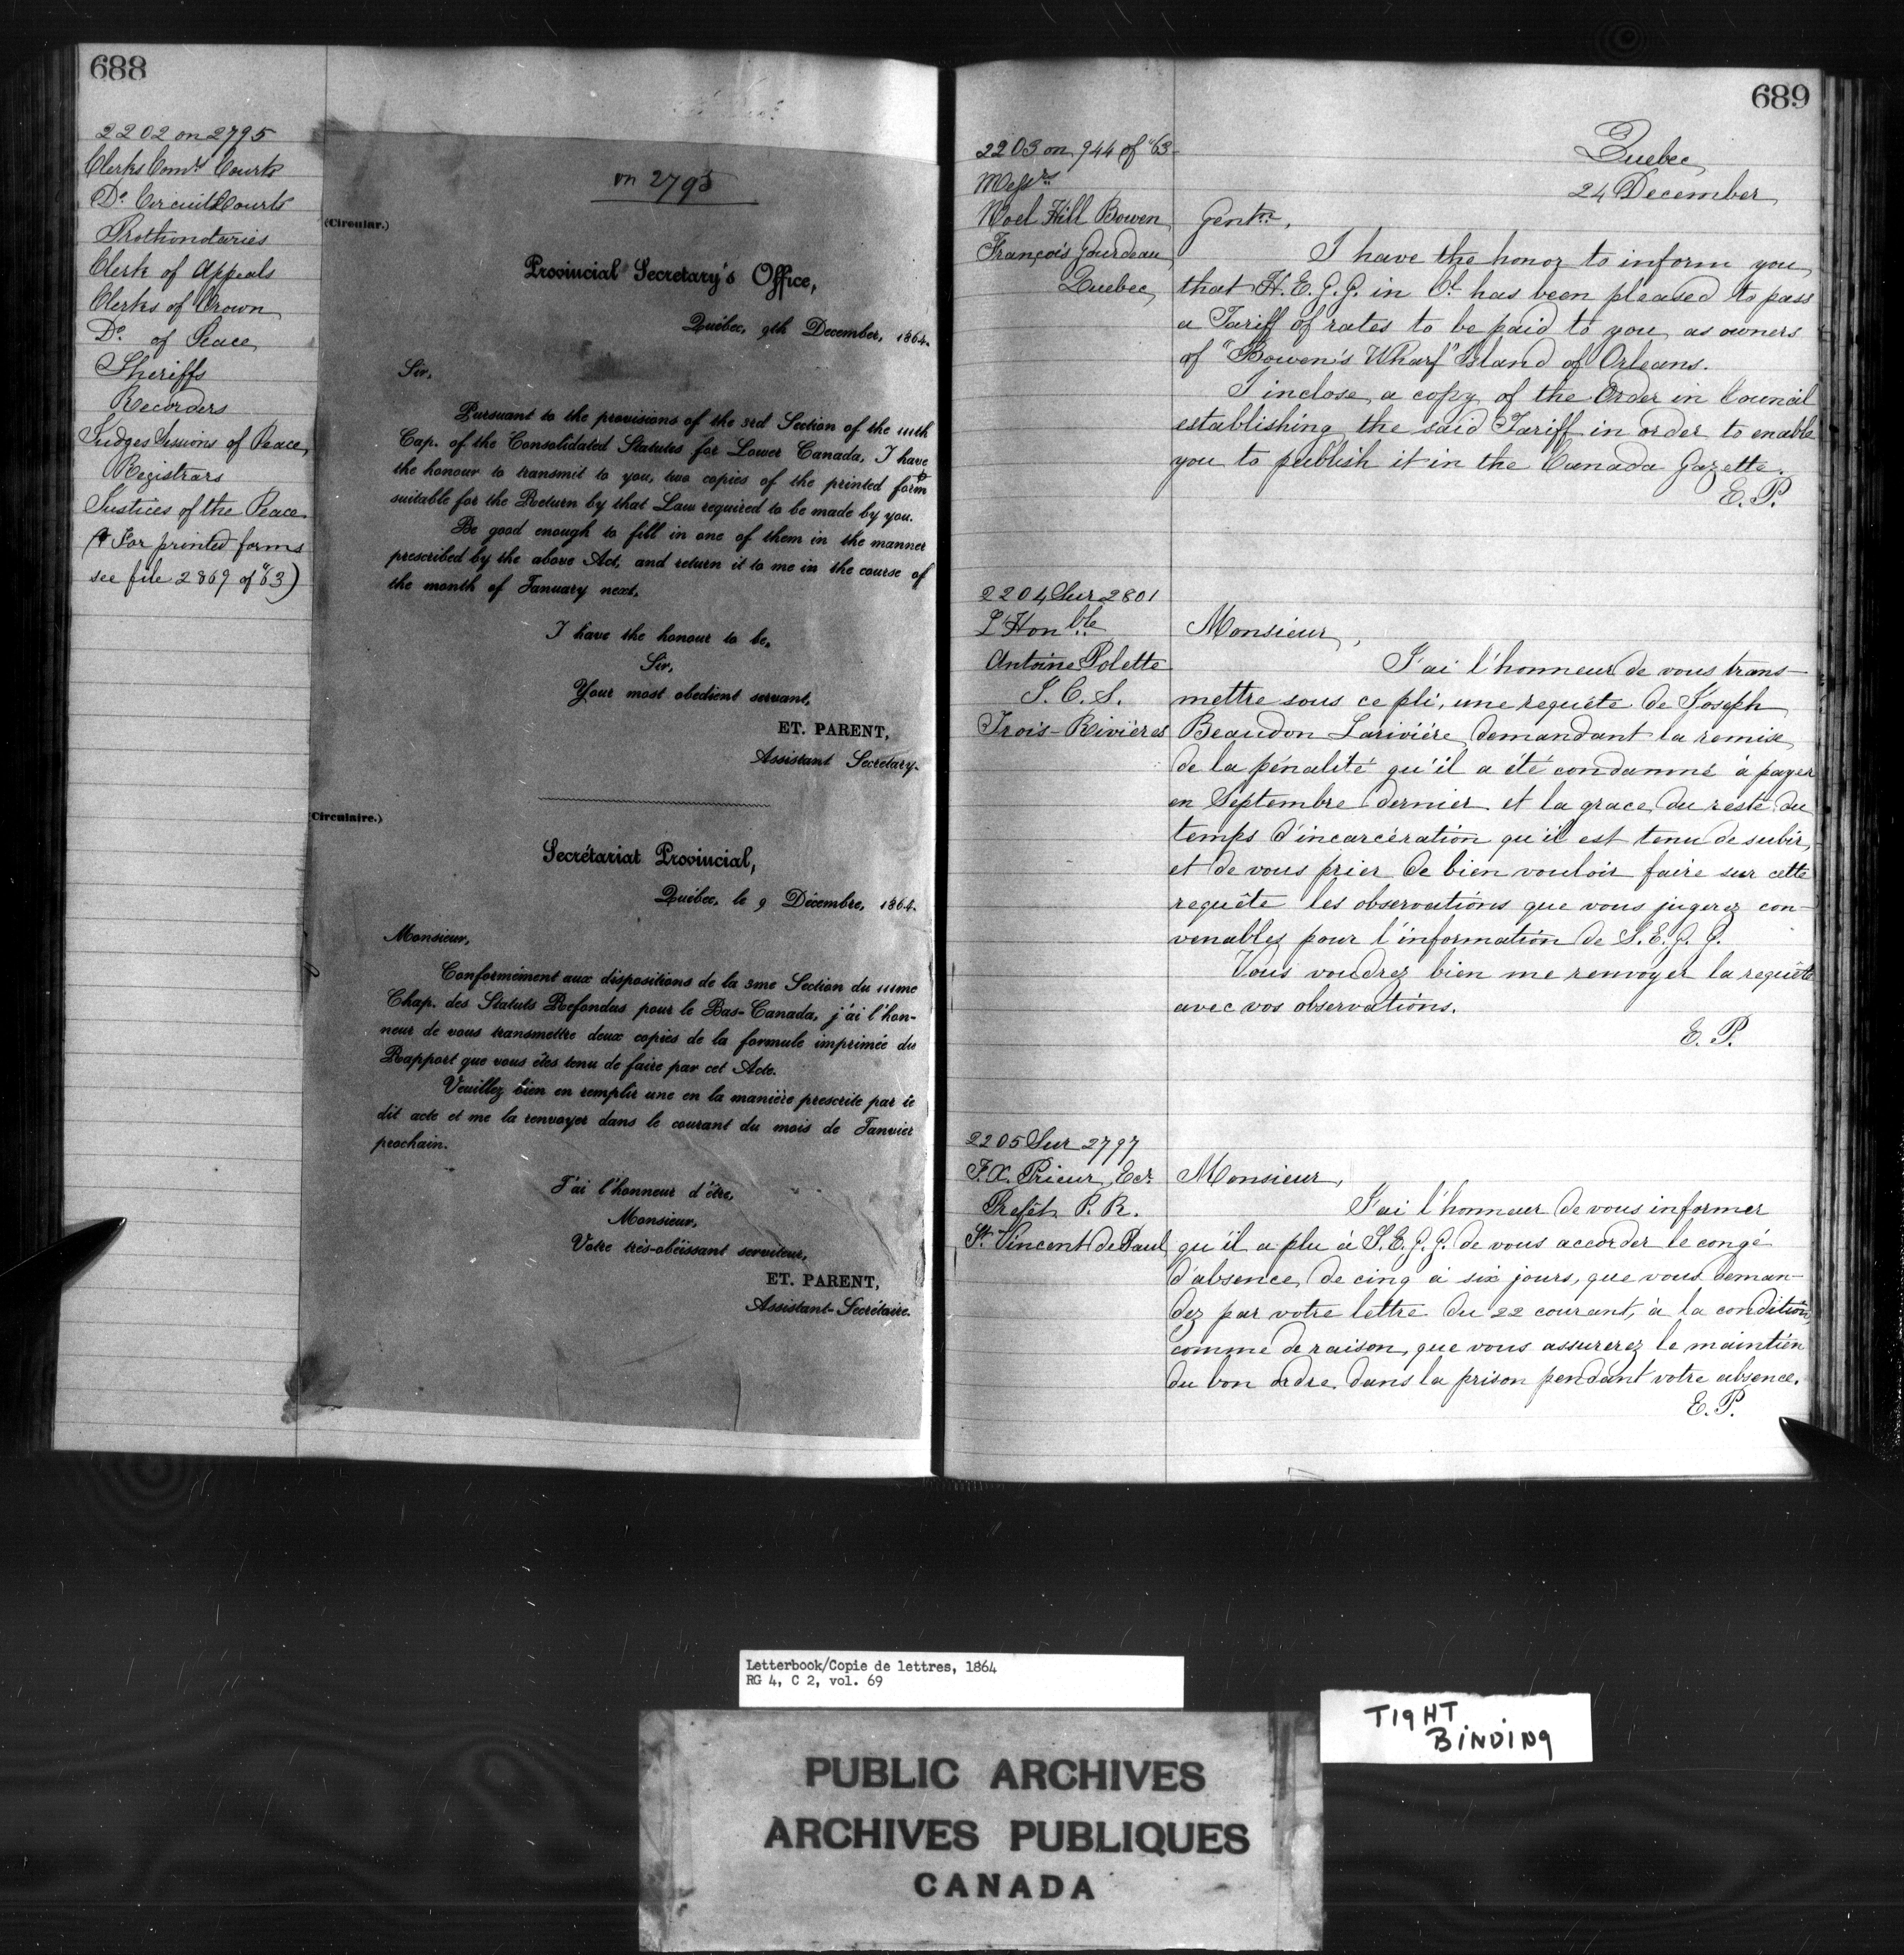 688
2202 on 2795
Clerks Comrs Courts
Do Circuit Courts
Prothonotaries
Clerk of Appeals
Clerks of Crown
Do of Peace
Sheriffs
Recorders
Judges Sessions of Peace
Registrars
Justices of the Peace
(For printed forms
see file 2869 of "63)
on 2795
(Circular.)
Provincial Secretary's Office,
Québec, 9th December, 1864.
Sir,
Pursuant to the provisions of the 3rd Section of the 111th
Cap. of the Consolidated Statutes for Lower Canada, I have
the honour to transmit to you, two copies of the printed form
suitable for the Return by that Law required to be made by you.
Be good enough to fill in one of them in the manner
prescribed by the above Act, and return it to me in the course of
the month of January next.
I have the honour to be,
Sir,
Your most obedient servant,
ET. PARENT,
Assistant Secretary.
Circulaire.)
Secrétariat Provincial,
Québec, le 9 Décembre, 1864.
Monsieur,
Conformément aux dispositions de la 3me Section du 111me
Chap. des Statuts Refondus pour le Bas-Canada, j'ai l'hon-
neur de vous transmettre deux copies de la formule imprimée du
Rapport que vous êtes tenu de faire par cet Acte.
Veuillez bien en remplir une en la manière prescrite par le
dit acte et me la renvoyer dans le courant du mois de Janvier
prochain.
J'ai l'honneur d'être,
Monsieur,
Votre très-obéissant serviteur,
ET. PARENT,
Assistant-Secrétaire.
689
2203 on 944 of "63
Messrs
Noel Hill Bowen
François Gourdeau
Quebec
Quebec
24 December
Gentn,
I have the honor to inform you
that H.E.G.G. in Cl has been pleased to pass
a Tariff of rates to be paid to you as owners
of "Bowen's Wharf" Island of Orleans.
I inclose a copy of the Order in Council
establishing the said Tariff in order to enable
you to publish it in the Canada Gazette.
E. P.
2204 Sur 2801
L'Honble
Antoine Polette
J. C. S.
Trois-Rivières
Monsieur,
J'ai l'honneur de vous trans-
mettre sous ce pli, une requête de Joseph
Beaudon Larivière demandant la remise
de la pénalité qu'il a été condamné à payer
en Septembre dernier et la grace du reste du
temps d'incarcération qu'il est tenu de subir,
et de vous prier de bien vouloir faire sur cette
requête les observations que vous jugerez con-
venables pour l'information de S. E. G. G.
Vous voudrez bien me renvoyer la requête
avec vos observations.
E. P.
2205 Sur 2797
F. X. Prieur Ecr
Prefêt P. R.
St Vincent de Paul
Monsieur,
J'ai l'honneur de vous informer
qu'il a plu à S. E. G. G. de vous accorder le congé
d'absence de cinq à six jours, que vous deman-
dez par votre lettre du 22 courant, à la condition,
comme de raison, que vous assurerez le maintien
du bon ordre dans la prison pendant votre absence.
E. P.
Letterbook/Copie de lettres, 1864
RG 4, C 2, vol. 69
TIGHT
BINDING
PUBLIC ARCHIVES
ARCHIVES PUBLIQUES
CANADA